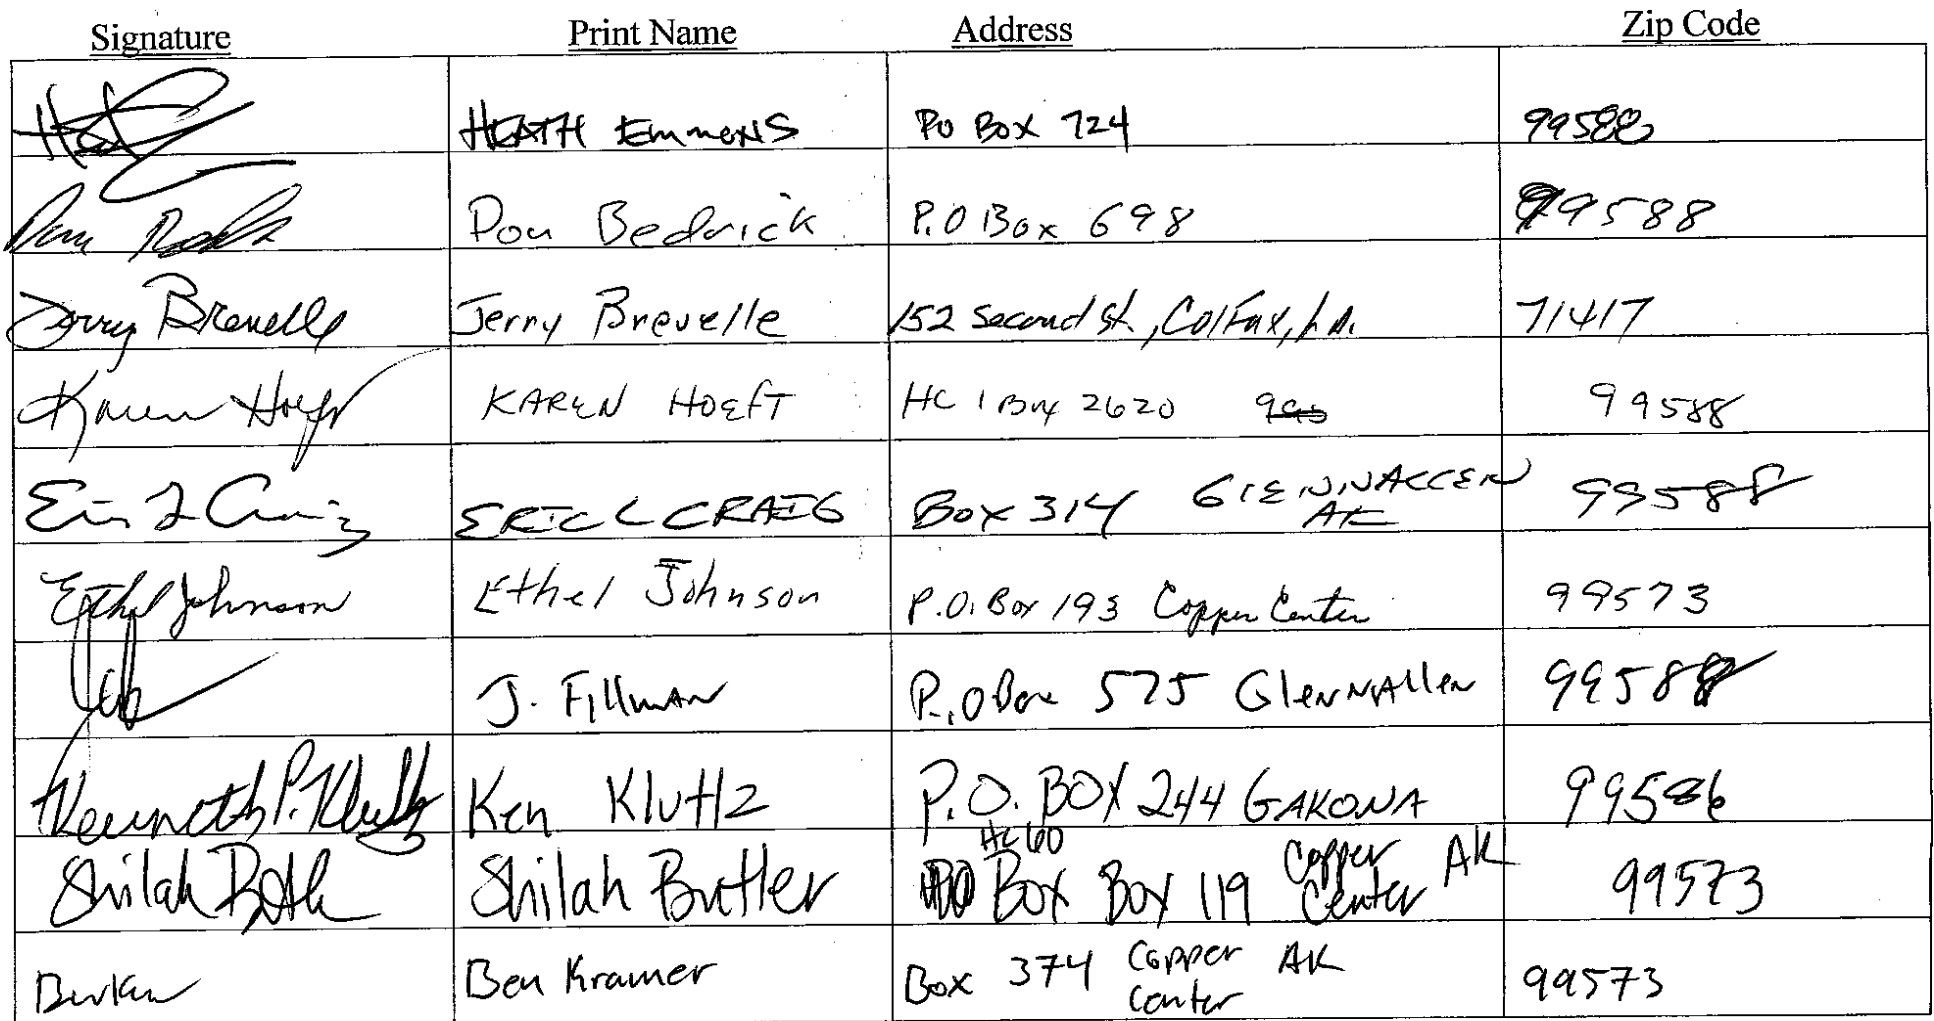 Signature Print Name Address Zip Code
HEATH EmmoNS PO Box 724 99588
Don Bedrick P.O Box 698 99588
Jerry Brevelle Jerry Brevelle 152 Second St., Colfax, LA. 71417
Karen Hoeft KAREN HOEFT HC 1 Box 2620 99588
Eric L Craig ERIC L CRAIG Box 314 GLENNALLEN AK 99588
Ethel Johnson Ethel Johnson P.O. Box 193 Copper Center 99573
J. Fillman P.O Box 575 GlennAllen 99588
Kenneth P. Kluttz Ken Kluttz P.O. BOX 244 GAKONA 99586
HC 60
Shilah Butler Shilah Butler Box Box 119 Copper Center AK 99573
Ben Kramer Box 374 Copper Center AK 99573